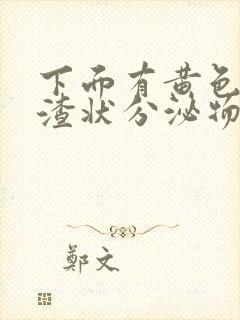 下面有黄色
渣状分泌物
鄭文